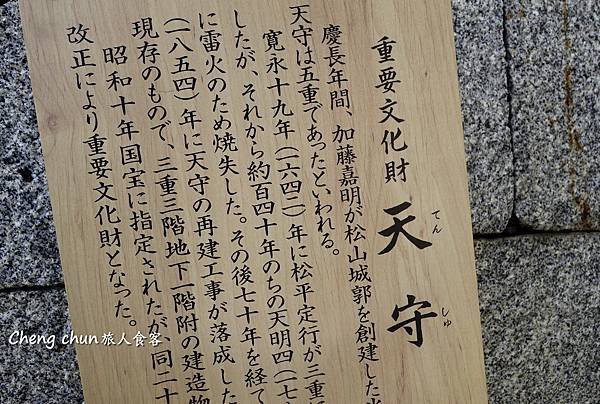 重要文化財 天守
てんしゅ
慶長年間、加藤嘉明が松山城郭を創建した
天守は五重であったといわれる。
寛永十九年(一六四二)年に松平定行が三重
したが、それから約百四十年のちの天明四(一七
に雷火のため焼失した。その後七十年を経て
(一八五四)年に天守の再建工事が落成した
現存のもので、三重三階地下一階附の建造物
昭和十年国宝に指定されたが、同二十
改正により重要文化財となった。
Cheng chun旅人食客